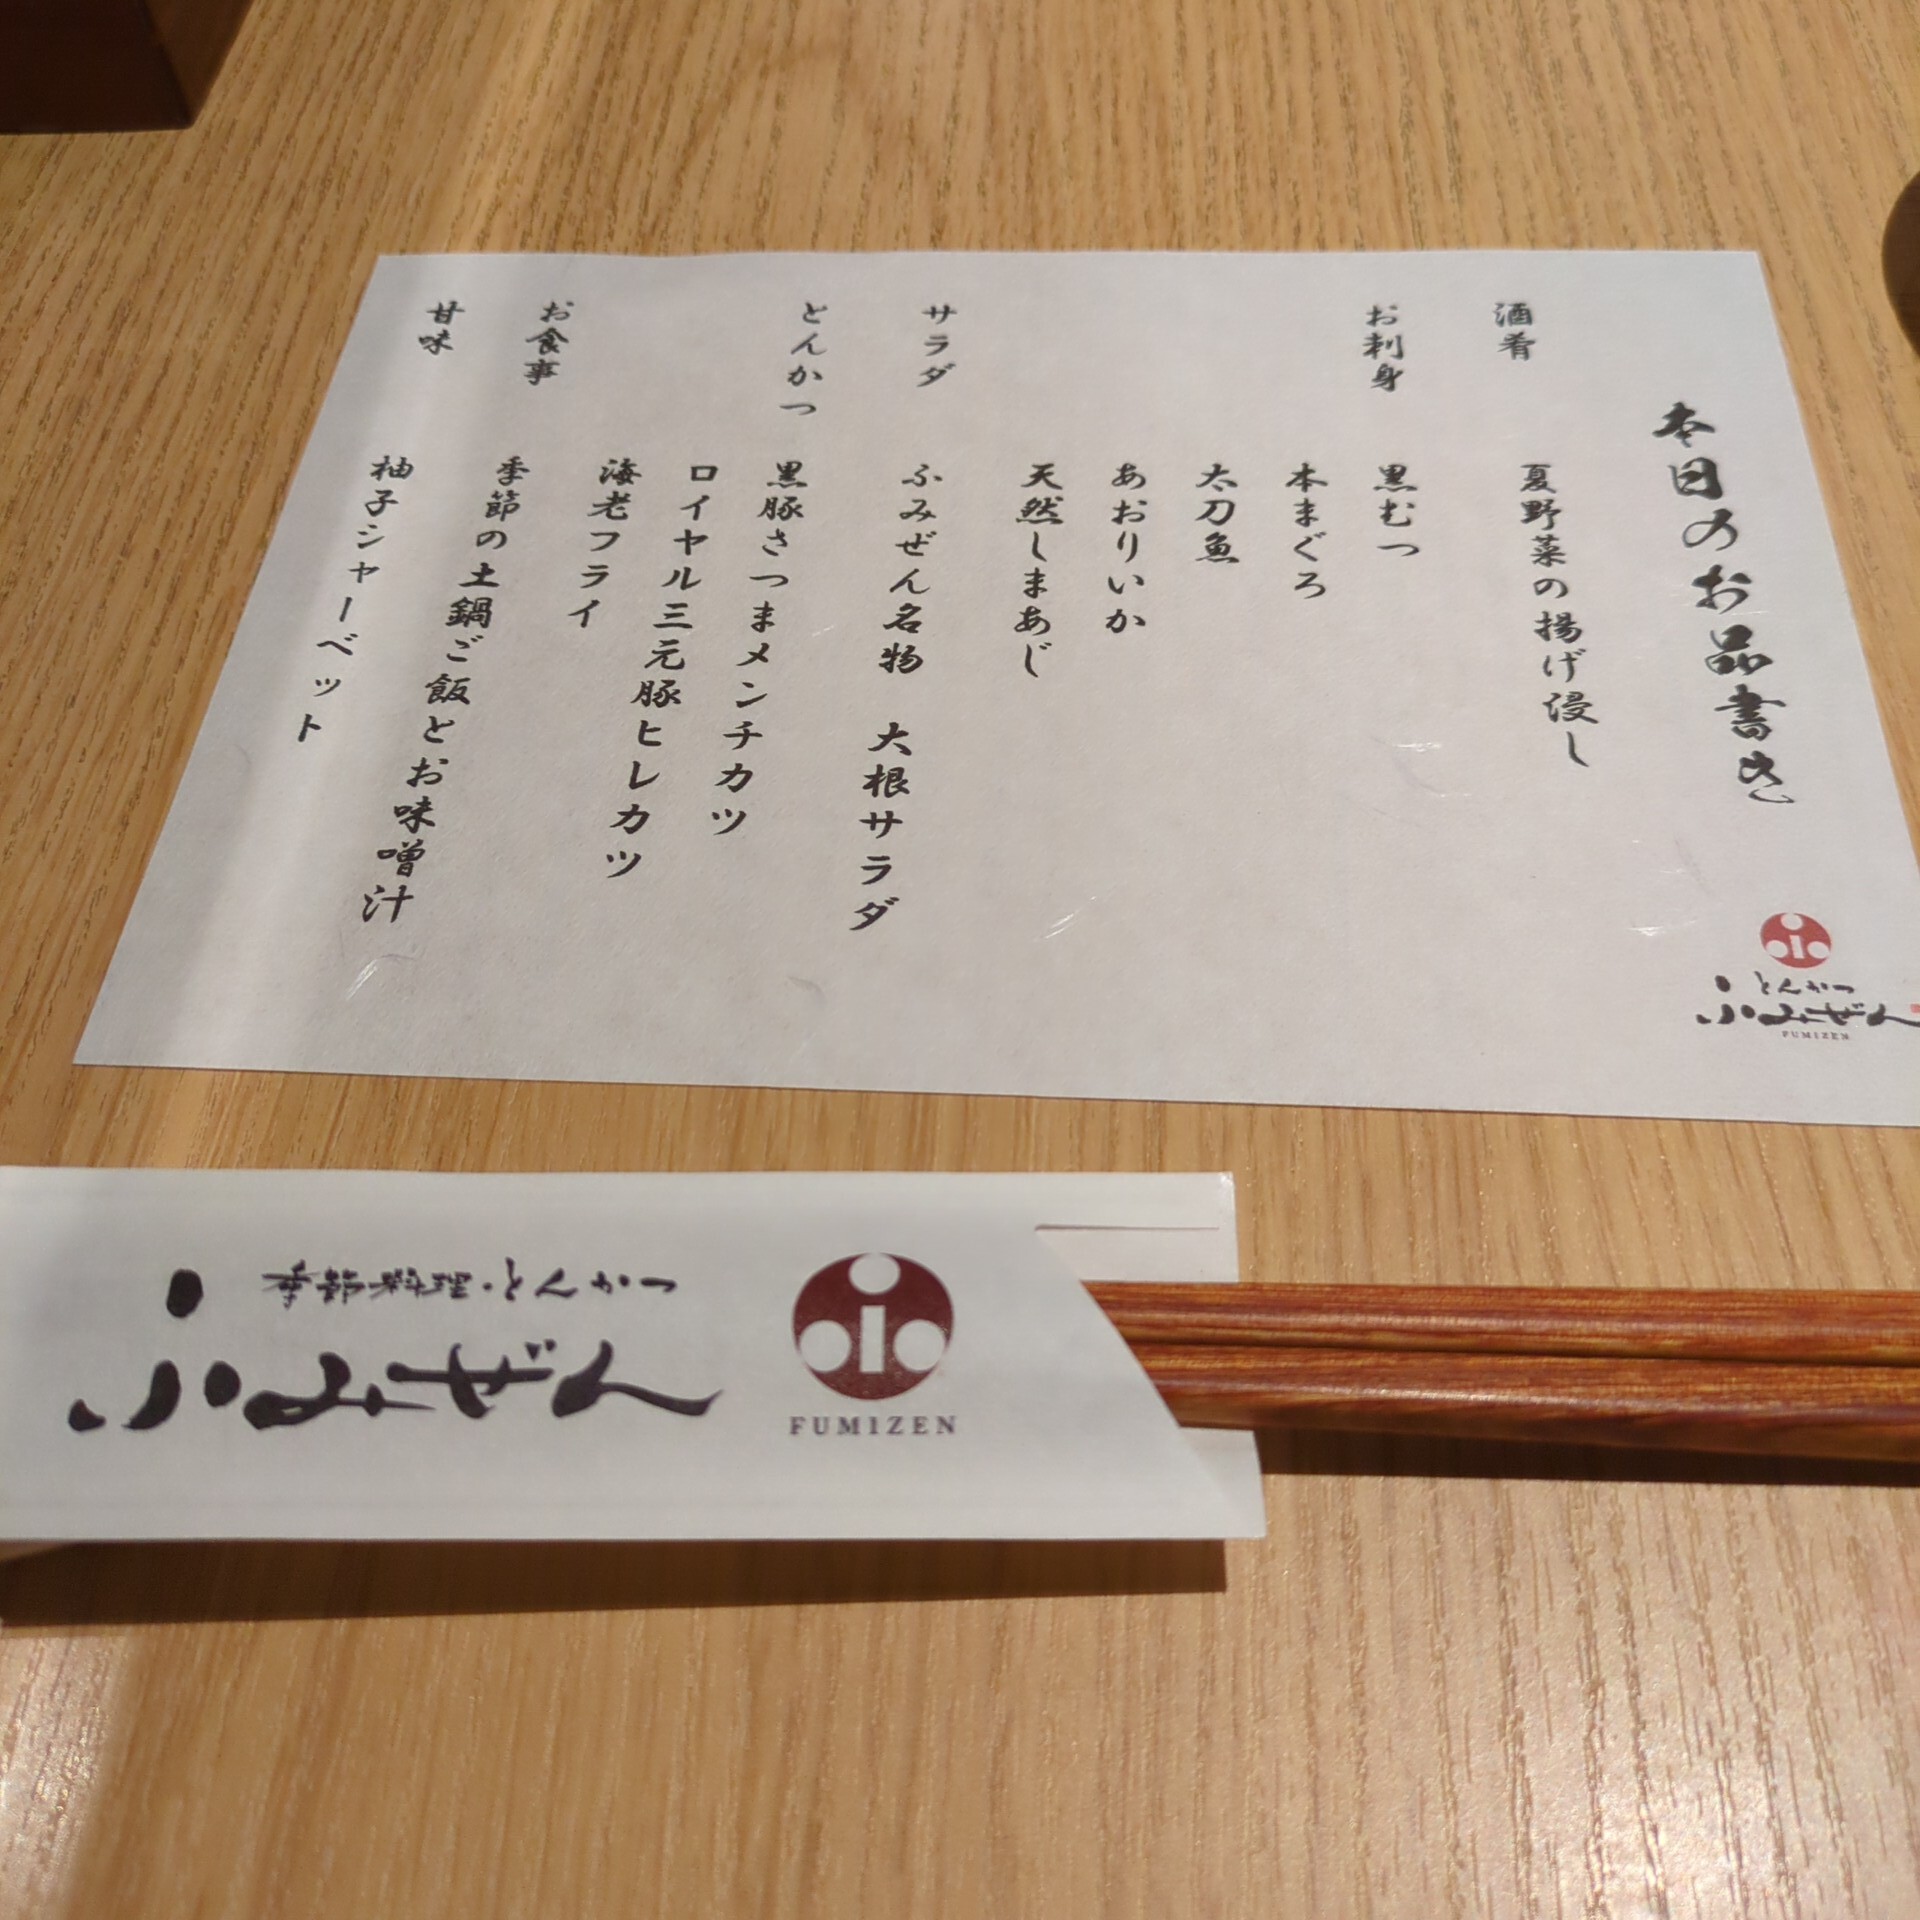 本日のお品書き
酒肴
夏野菜の揚げ浸し
お刺身
黒むつ
本まぐろ
太刀魚
あおりいか
天然しまあじ
サラダ
ふみぜん名物　大根サラダ
とんかつ
黒豚さつまメンチカツ
ロイヤル三元豚ヒレカツ
海老フライ
お食事
季節の土鍋ご飯とお味噌汁
甘味
柚子シャーベット
とんかつ
ふみぜん
FUMIZEN
季節料理・とんかつ
ふみぜん
FUMIZEN